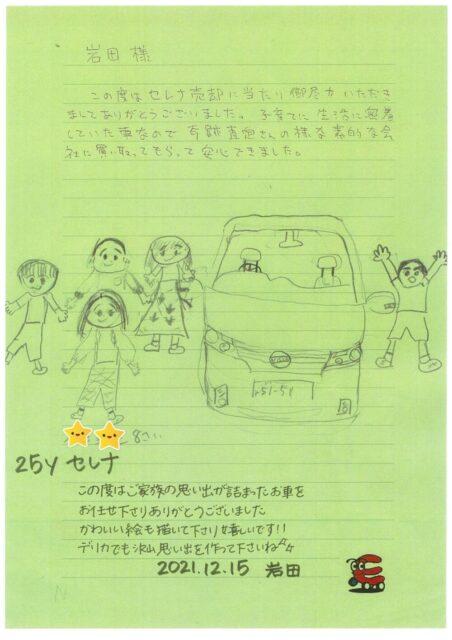 岩田 様
この度はセレナ売却に当たり御尽力いただき
ましてありがとうございました。子育てに生活に密着
していた車なので 奇跡査定さんの様な素的な会
社に買い取ってもらって安心できました。
8さい
25Y セレナ
この度はご家族の思い出が詰まったお車を
お任せ下さりありがとうございました
かわいい絵も描いて下さり嬉しいです!!
デリカでも沢山思い出を作って下さいね
2021.12.15 岩田